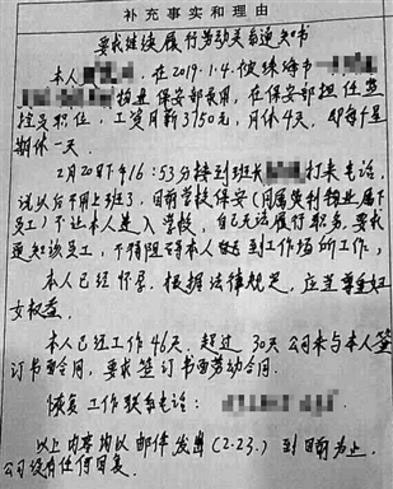 补充事实和理由
要求继续履行劳动关系通知书
本人 在2019.1.4.被珠海市
物业保安部录用,在保安部担任监
控员职位,工资月薪3750元,月休4天,即每个星
期休一天.
2月20日下午16:53分接到班长 打来电话,
说以后不用上班了,目前学校保安(同属 物业属下
员工)不让本人进入学校,自己无法履行职务,要求
通知该员工,不得阻碍本人 到工作场所工作,
本人已经怀孕,根据法律规定,应当尊重妇
女权益.
本人已经工作46天,超过30天公司未与本人签
订书面合同,要求签订书面劳动合同.
恢复工作联系电话:
以上内容均以邮件发出(2.23.)到目前为止,
公司没有任何回复.